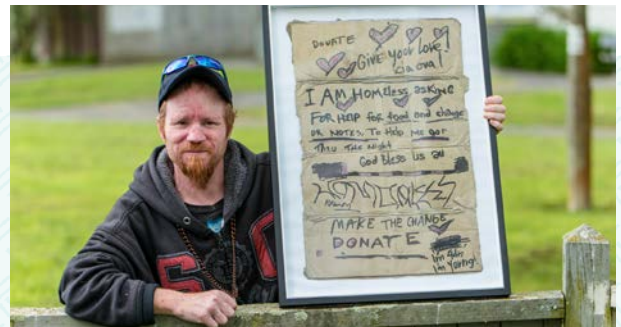 DONATE
Give your Love!
Kia ora!
I AM Homeless asking
FOR HELP for food and change
OR NOTES. To Help me get
Thru The Night
God Bless us all
MAKE THE CHANGE
DONATE
I'm Young!